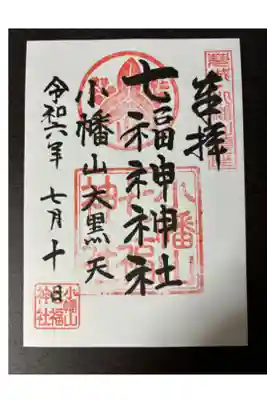 奉拝
七福神神社
小幡山大黒天
令和六年 七月十日
小幡山
七福
神社